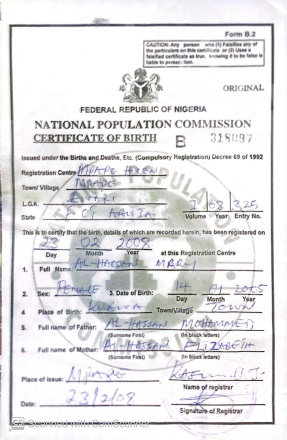 Form B.2
CAUTION: Any person who (1) Falsifies any of
the particulars on this certificate or (2) Uses a
falsified certificate as true, knowing it to be false is
liable to prosecution.
ORIGINAL
FEDERAL REPUBLIC OF NIGERIA
NATIONAL POPULATION COMMISSION
CERTIFICATE OF BIRTH B 318097
Issued under the Births and Deaths, Etc. (Compulsory Registration) Decree 69 of 1992
Registration Centre MPAPE
Town/Village MPAPE
L.G.A. BWARI
State FCT ABUJA Volume Year Entry No.
This is to certify that the birth, details of which are recorded herein, has been registered on
23 02 2008
Day Month Year at this Registration Centre
1. Full Name: AL-HASSAN
2. Sex: FEMALE 3. Date of Birth: 14 2005
Day Month Year
4. Place of Birth: Town/Village TOWN
5. Full name of Father: AL-HASSAN MOHAMMED
(Surname First) (In block letters)
6. Full name of Mother: AL-HASSAN ELIZABETH
(Surname First) (In block letters)
Place of Issue: MPAPE
Name of registrar
Date: 23/2/08
Signature of Registrar
Scanned with CamScanner